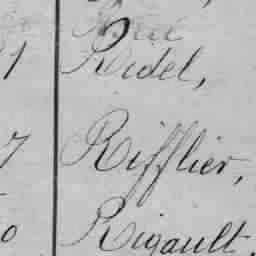 1 Ridel,
7 Rifflier,
0 Rigault,